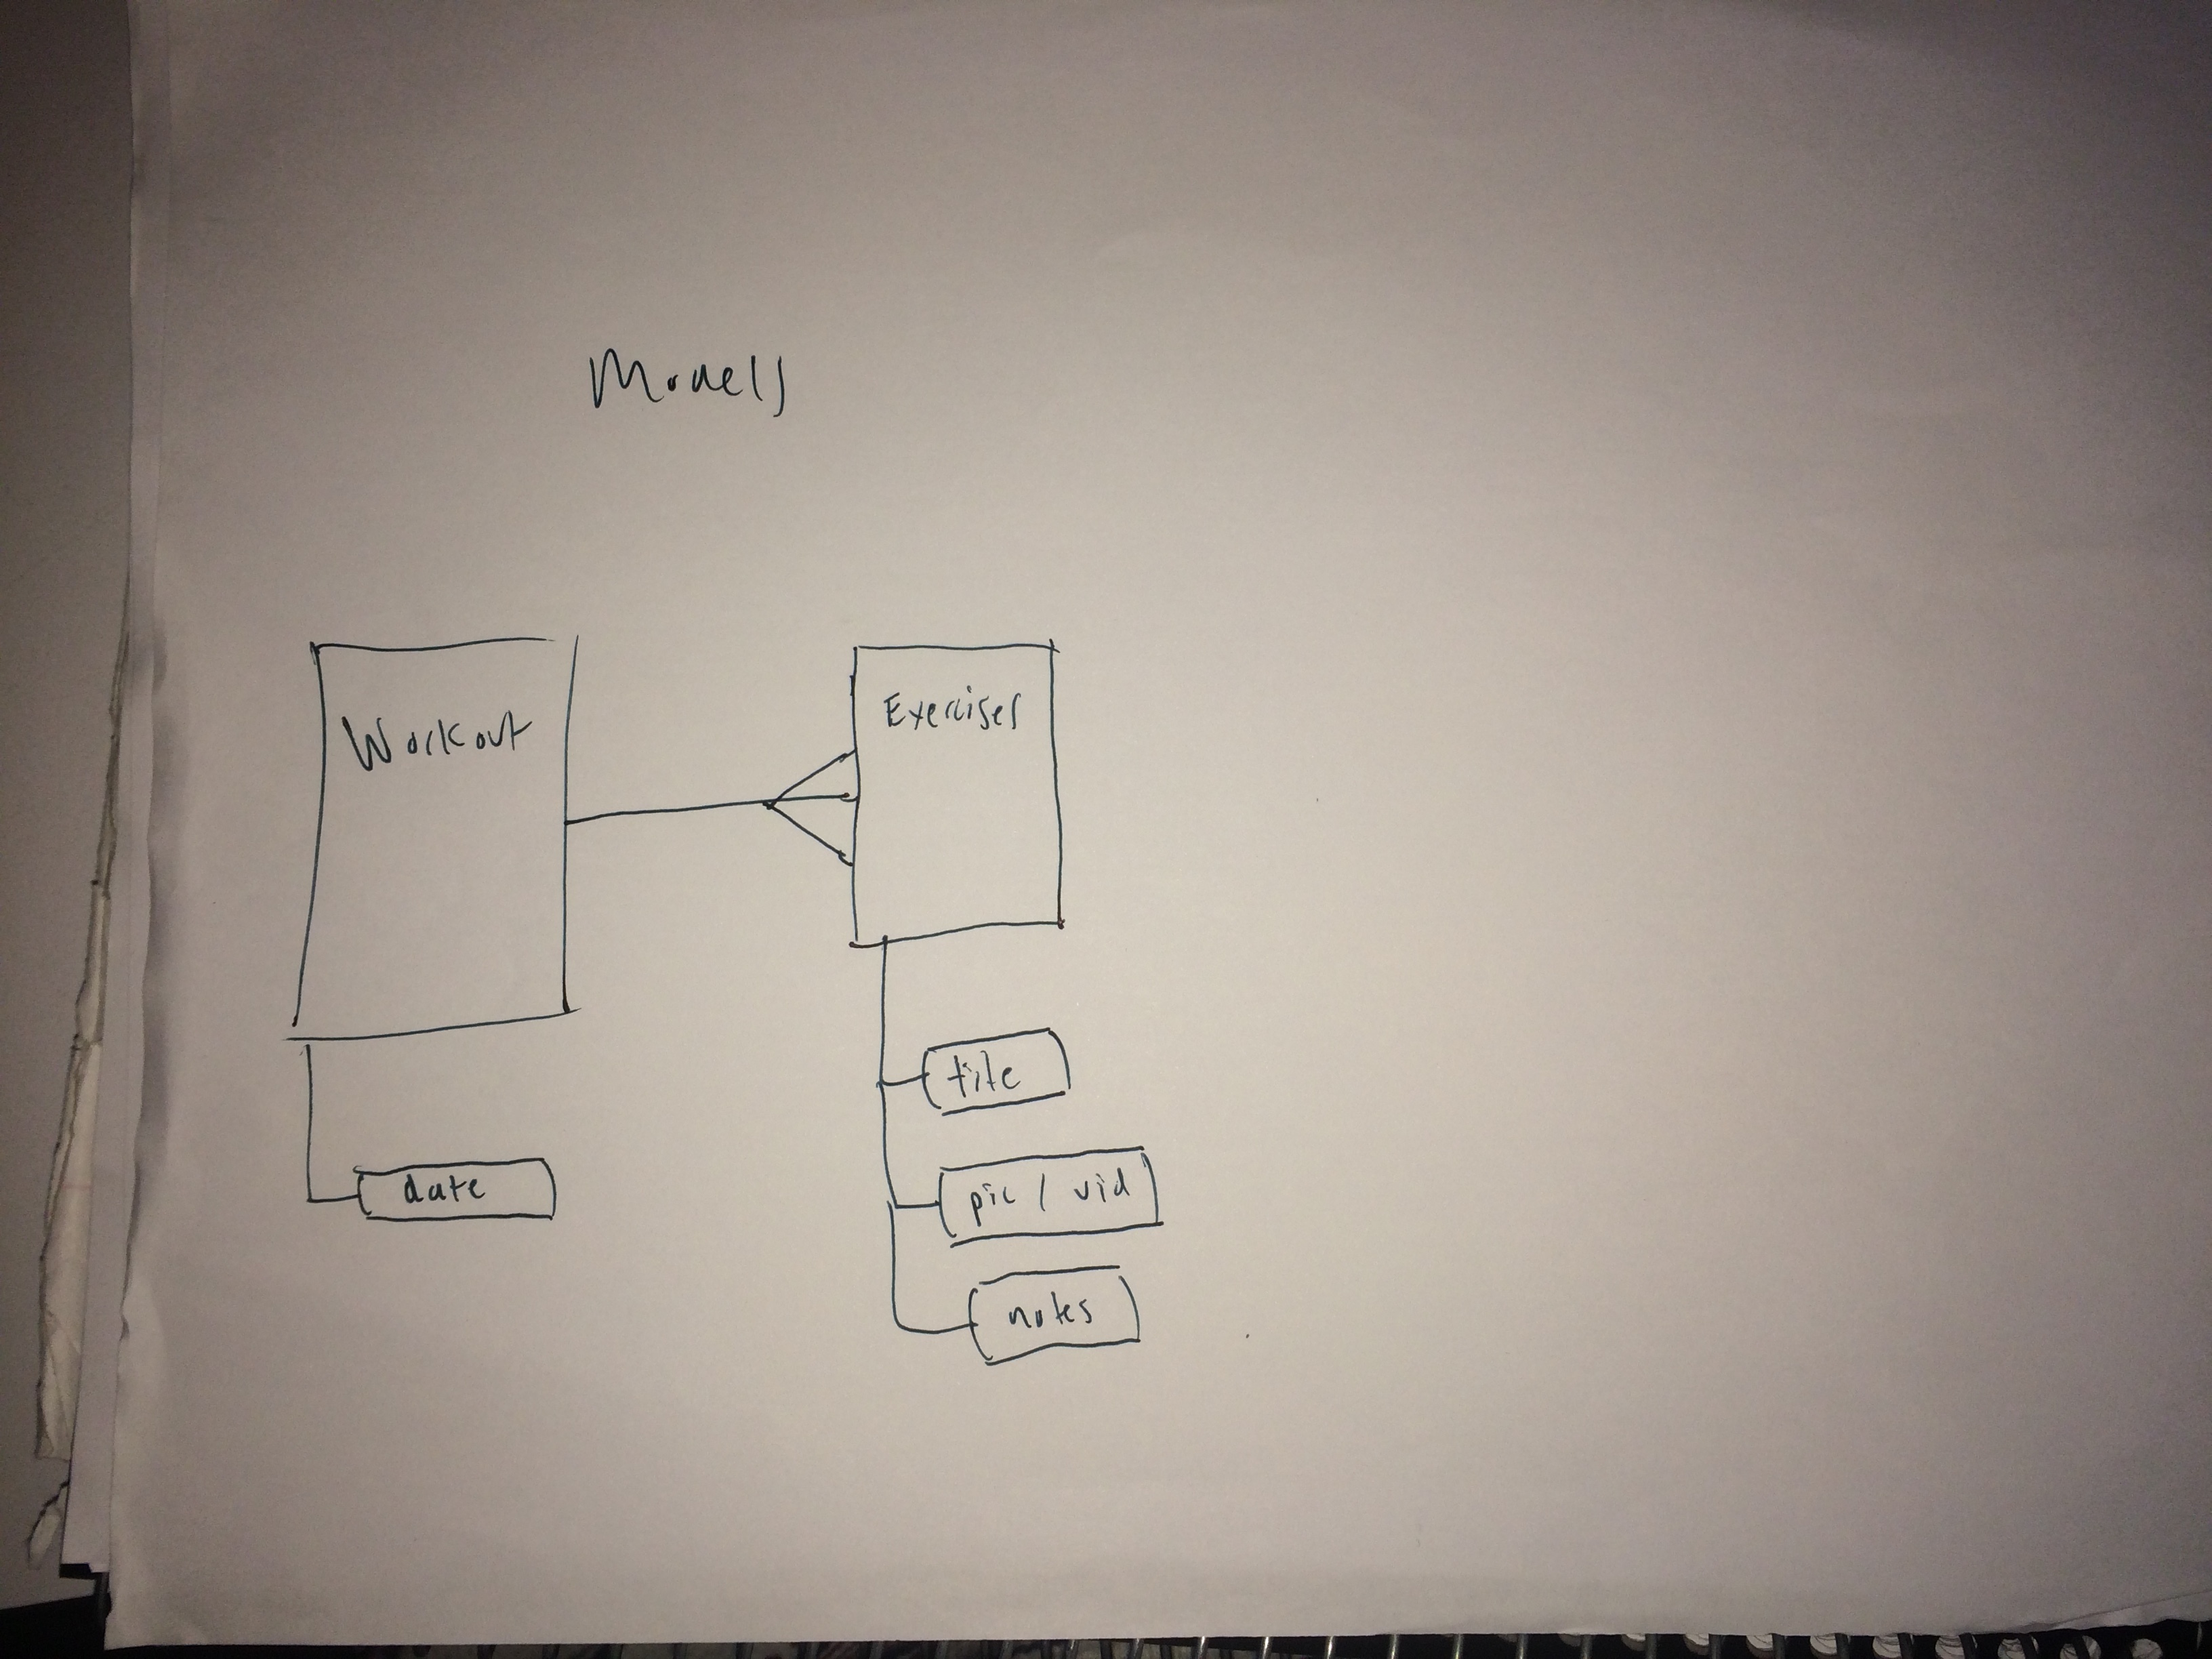 Models
Workout
Exercises
title
pic / vid
date
notes